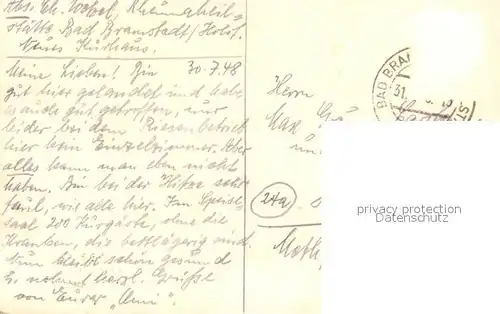 Abs. Ch. Wobel, Rheumaheil-
stätte Bad Bramstedt/Holst.
Neues Kurhaus.
30.7.48
Meine Lieben! Bin
gut hier gelandet und habe
es auch gut getroffen, nur
leider bei dem Riesenbetrieb
hier kein Einzelzimmer. Aber
alles kann man eben nicht
haben. Bin bei der Hitze sehr
faul, wie alle hier. Im Speise-
saal 200 Kurgäste, ohne die
Kranken, die bettlägerig sind.
Nun bleibt schön gesund
u. nehmt herzl. Grüsse
von Eurer "Omi".
BAD BRA
31.
Herrn
Max
un
(24a)
privacy protection
Datenschutz